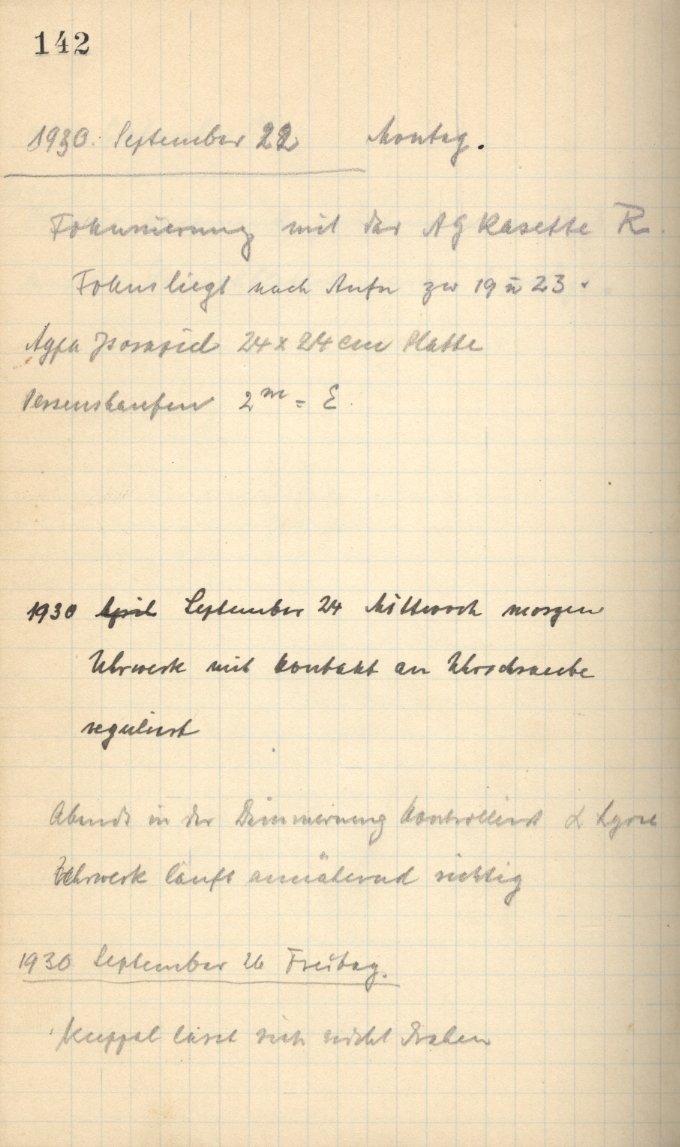 142
1930. September 22 Montag.
Fokussierung mit der AG Kasette R.
Fokus liegt nach Aufn zw 19 u 23.
Agfa Isorapid 24 x 24 cm Platte
Perseushaufen 2ᵐ = E
1930 April September 24 Mittwoch morgen
Uhrwerk mit Kontakt an Uhrschraube
reguliert
Abends in der Dämmerung kontrolliert α Lyrae
Uhrwerk läuft annähernd richtig
1930 September 26 Freitag.
Kuppel lässt sich nicht drehen